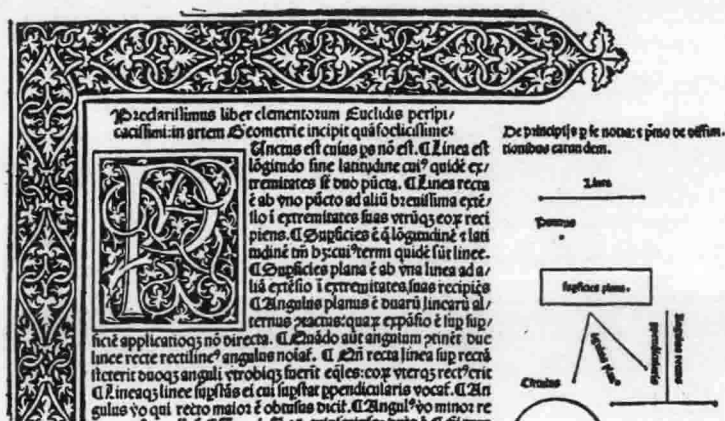 Preclarissimus liber elementorum Euclidis perspi/
cacissimi: in artem Geometrie incipit quãfoelicissime:
Punctus est cuius ps nõ est. ¶ Linea est
lõgitudo sine latitudine cuiꝰ quidẽ ex/
tremitates sũt duo pũcta. ¶ Linea recta
ẽ ab vno pũcto ad aliũ breuissima extẽ/
sio ĩ extremitates suas vtrũqꝫ eoꝝ reci
piens. ¶ Supficies ẽ q̃ lõgitudinẽ ⁊ lati
tudinẽ tm̃ hꝫ: cuiꝰ termi quidẽ sũt linee.
¶ Supficies plana ẽ ab vna linea ad a/
liã extẽsio ĩ extremitates suas recipiẽs
¶ Angulus planus ẽ duarũ linearũ al/
ternus ꝯtactus: quaꝝ expãsio ẽ sup sup/
ficiẽ applicatioqꝫ nõ directa. ¶ Quãdo aũt angulum ꝯtinẽt due
linee recte rectilineꝰ angulus noiať. ¶ Qñ recta linea sup rectã
steterit duoqꝫ anguli vtrobiqꝫ fuerit eq̃les: eoꝝ vterqꝫ rectꝰ erit
¶ Lineaqꝫ linee supstãs ei cui supstat ppendicularis vocať. ¶ An
gulus vo qui recto maior ẽ obtusus dicit. ¶ Angulꝰ vo minor re
De principijs p se notis: ⁊ pmo de diffini-
tionibus earundem.
Linea
Punctus
supficies plana.
Circulus